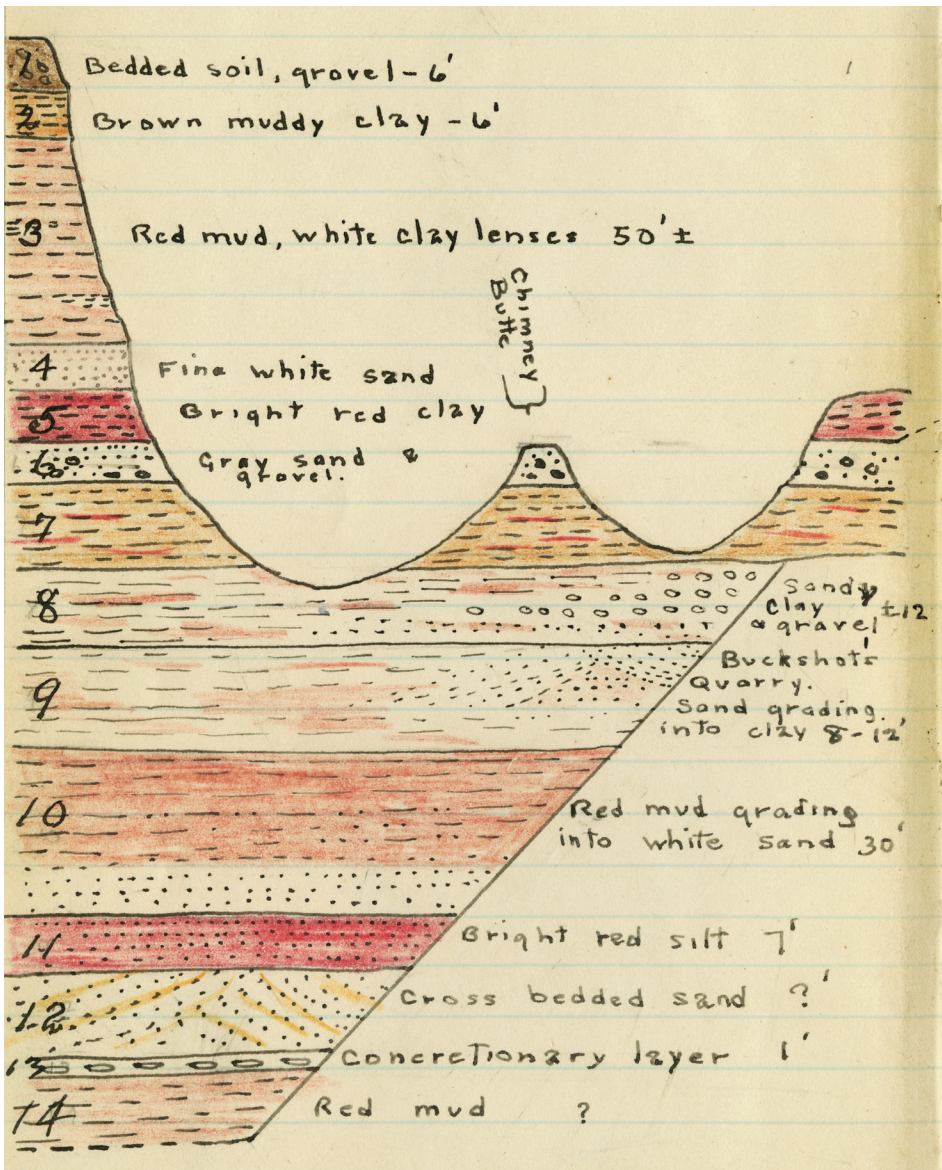 1 Bedded soil, gravel - 6'
2 Brown muddy clay - 6'
3 Red mud, white clay lenses 50' ±
Chimney
Butte
4 Fine white sand
5 Bright red clay
6 Gray sand &
gravel.
7
8 Sandy
clay ±12
& gravel
Buckshot's
Quarry.
9 Sand grading
into clay 8-12'
10 Red mud grading
into white sand 30'
11 Bright red silt 7'
12 Cross bedded sand ?'
13 Concretionary layer 1'
14 Red mud ?